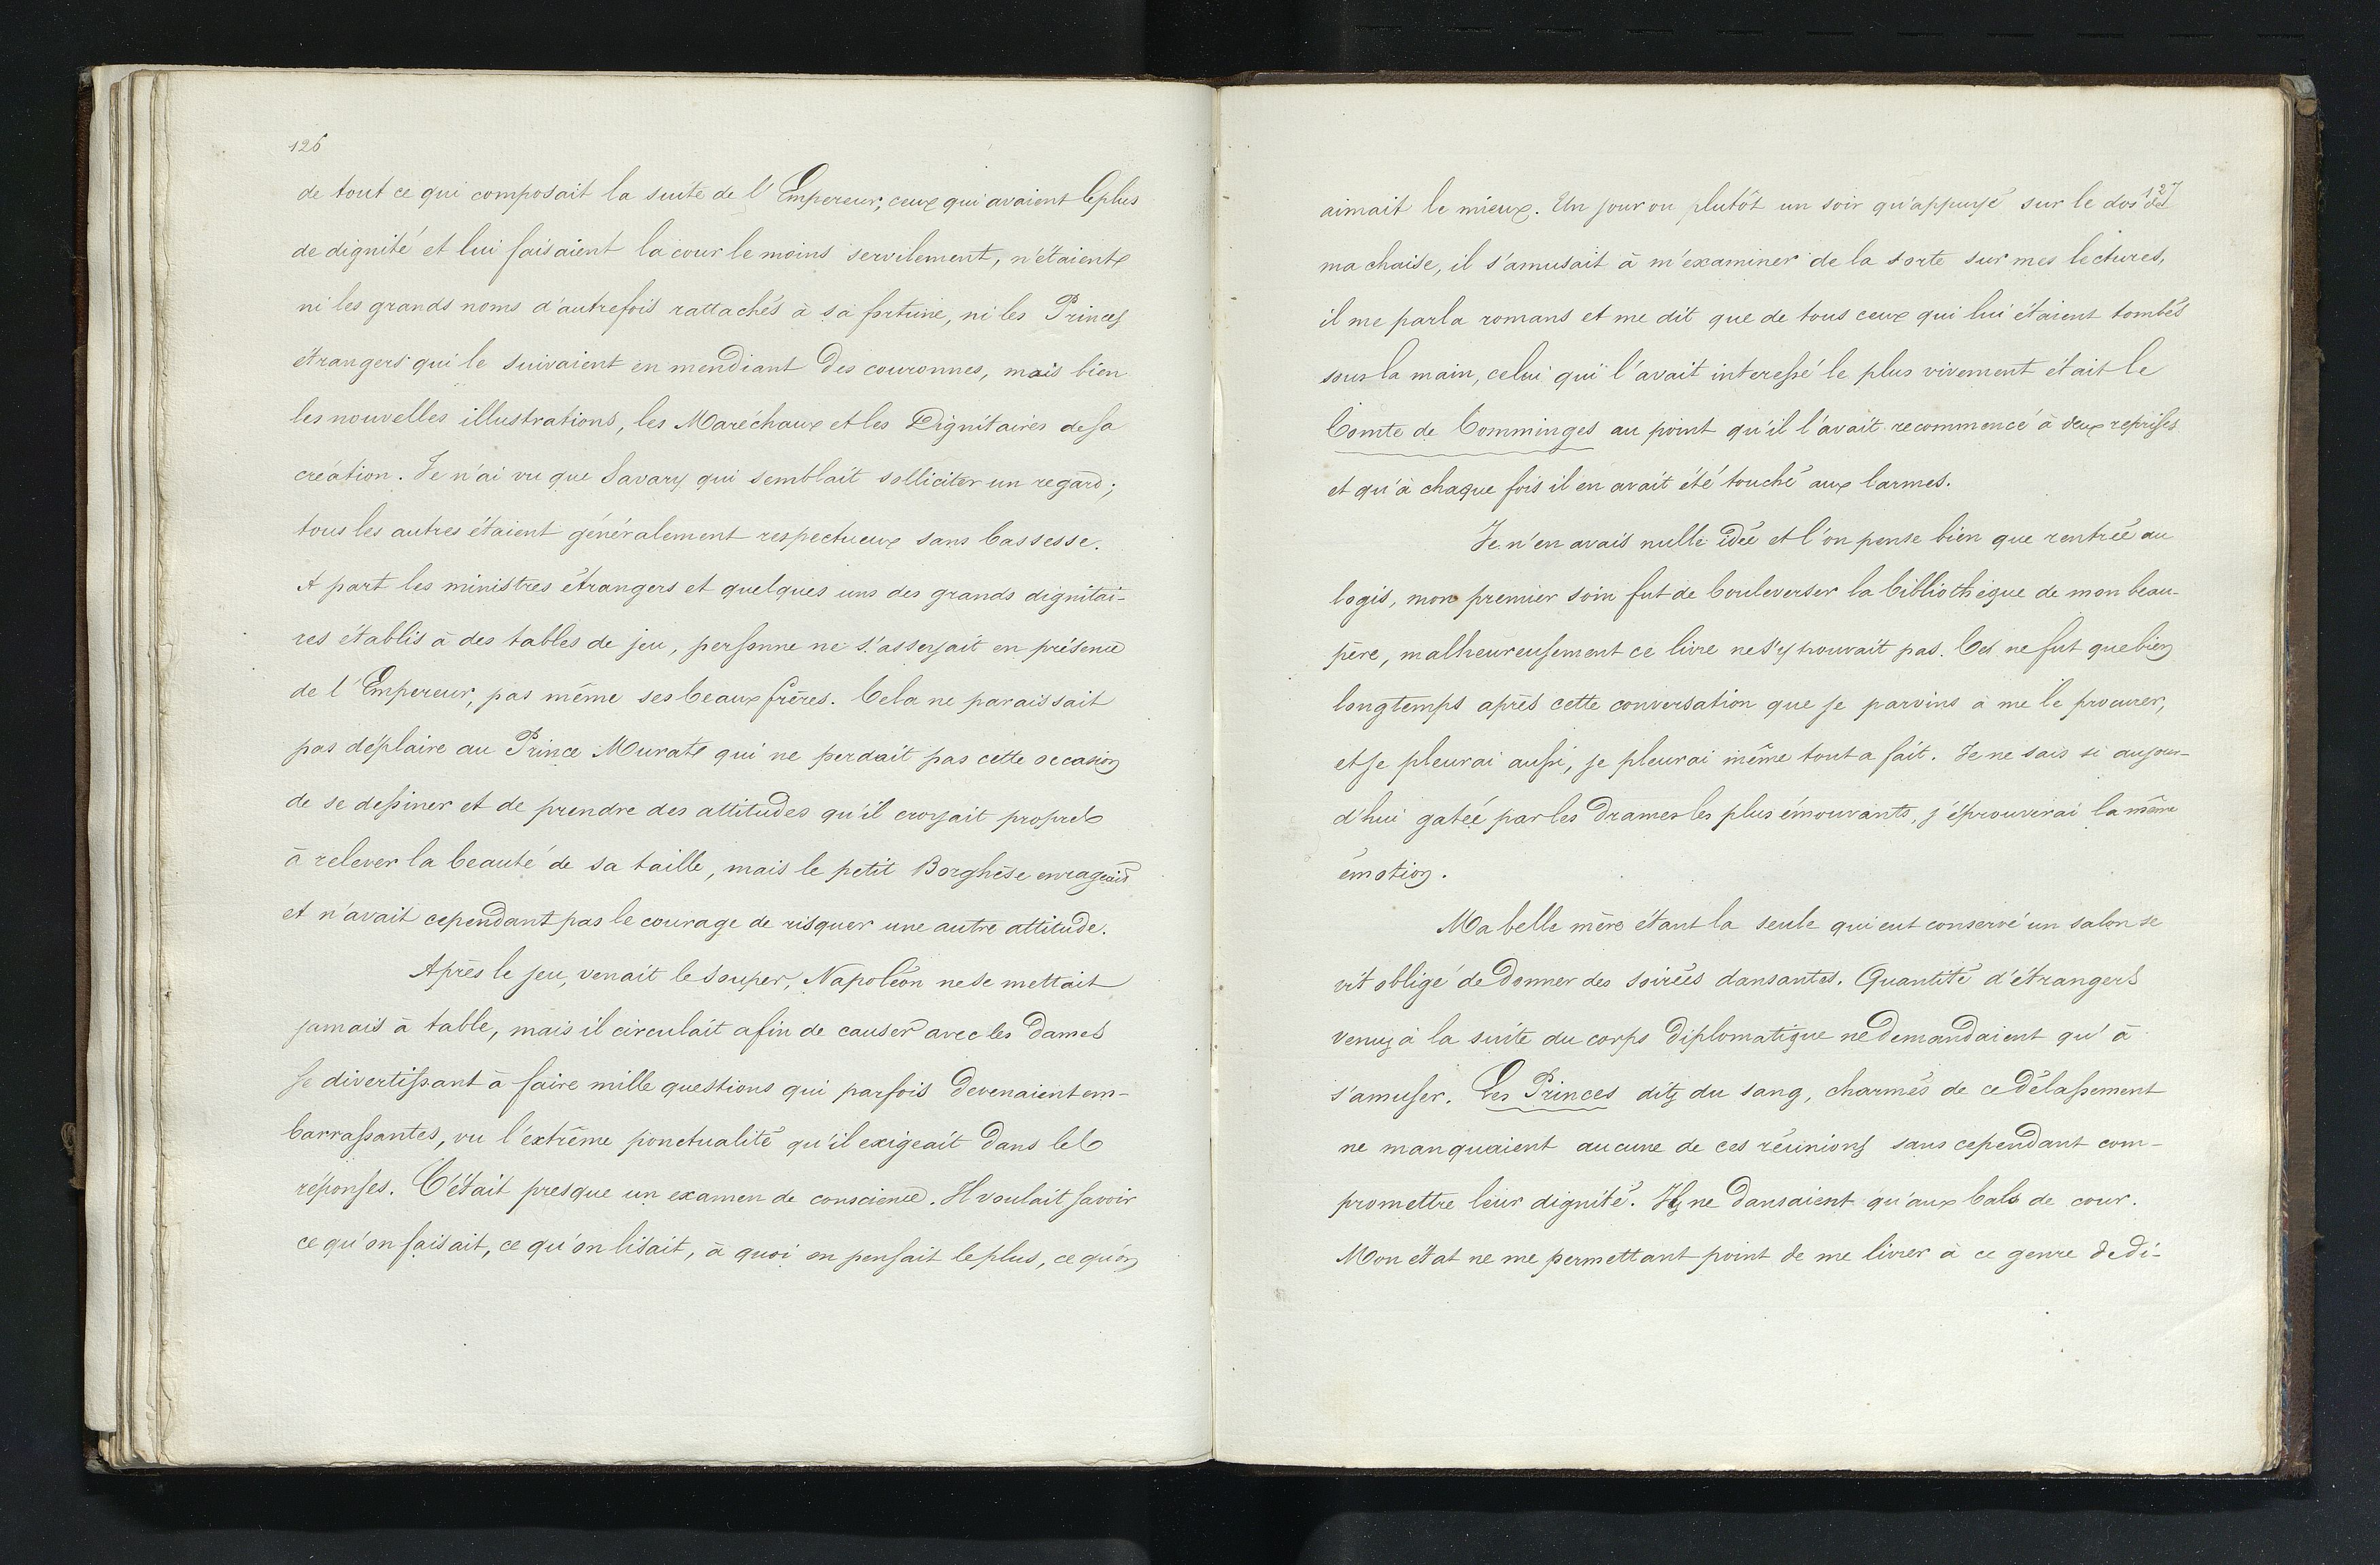 126
de tout ce qui composait la suite de l'Empereur, ceux qui avaient le plus
de dignité et lui faisaient la cour le moins servilement, n'étaient
ni les grands noms d'autrefois rattachés à sa fortune, ni les Princes
étrangers qui le suivaient en mendiant des couronnes, mais bien
les nouvelles illustrations, les Maréchaux et les Dignitaires de sa
création. Je n'ai vu que Savary qui semblait solliciter un regard;
tous les autres étaient généralement respectueux sans bassesse.
A part les ministres étrangers et quelques uns des grands dignitai-
res établis à des tables de jeu, personne ne s'asseyait en présence
de l'Empereur, pas même ses beaux frères. Cela ne paraissait
pas déplaire au Prince Murat qui ne perdait pas cette occasion
de se dessiner et de prendre des attitudes qu'il croyait propres
à relever la beauté de sa taille, mais le petit Borghèse enrageait
et n'avait cependant pas le courage de risquer une autre attitude.
Après le jeu, venait le souper, Napoléon ne se mettait
jamais à table, mais il circulait afin de causer avec les dames
se divertissant à faire mille questions qui parfois devenaient em-
barrassantes, vu l'extrême ponctualité qu'il exigeait dans les
réponses. C'était presque un examen de conscience. Il voulait savoir
ce qu'on faisait, ce qu'on lisait, à quoi on pensait le plus, ce qu'on
127
aimait le mieux. Un jour ou plutôt un soir qu'appuyé sur le dos de
ma chaise, il s'amusait à m'examiner de la sorte sur mes lectures,
il me parla romans et me dit que de tous ceux qui lui étaient tombés
sous la main, celui qui l'avait interessé le plus vivement était le
Comte de Comminges au point qu'il l'avait recommencé à deux reprises
et qu'à chaque fois il en avait été touché aux larmes.
Je n'en avais nulle idée et l'on pense bien que rentrée au
logis, mon premier soin fut de bouleverser la bibliothèque de mon beau-
père, malheureusement ce livre ne s'y trouvait pas. Ces ne fut que bien
longtemps après cette conversation que je parvins à me le procurer,
et je pleurai aussi, je pleurai même tout a fait. Je ne sais si aujour-
d'hui gatée par les drames les plus émouvants, j'éprouverai la même
émotion.
Ma belle mère étant la seule qui eut conservé un salon se
vit obligé de donner des soirées dansantes. Quantité d'étrangers
venus à la suite du corps diplomatique ne demandaient qu'à
s'amuser. Les Princes dits du sang, charmés de ce délassement
ne manquaient aucune de ces réunions sans cependant com-
promettre leur dignité. Ils ne dansaient qu'aux bals de cour.
Mon état ne me permettant point de me livrer à ce genre de di-